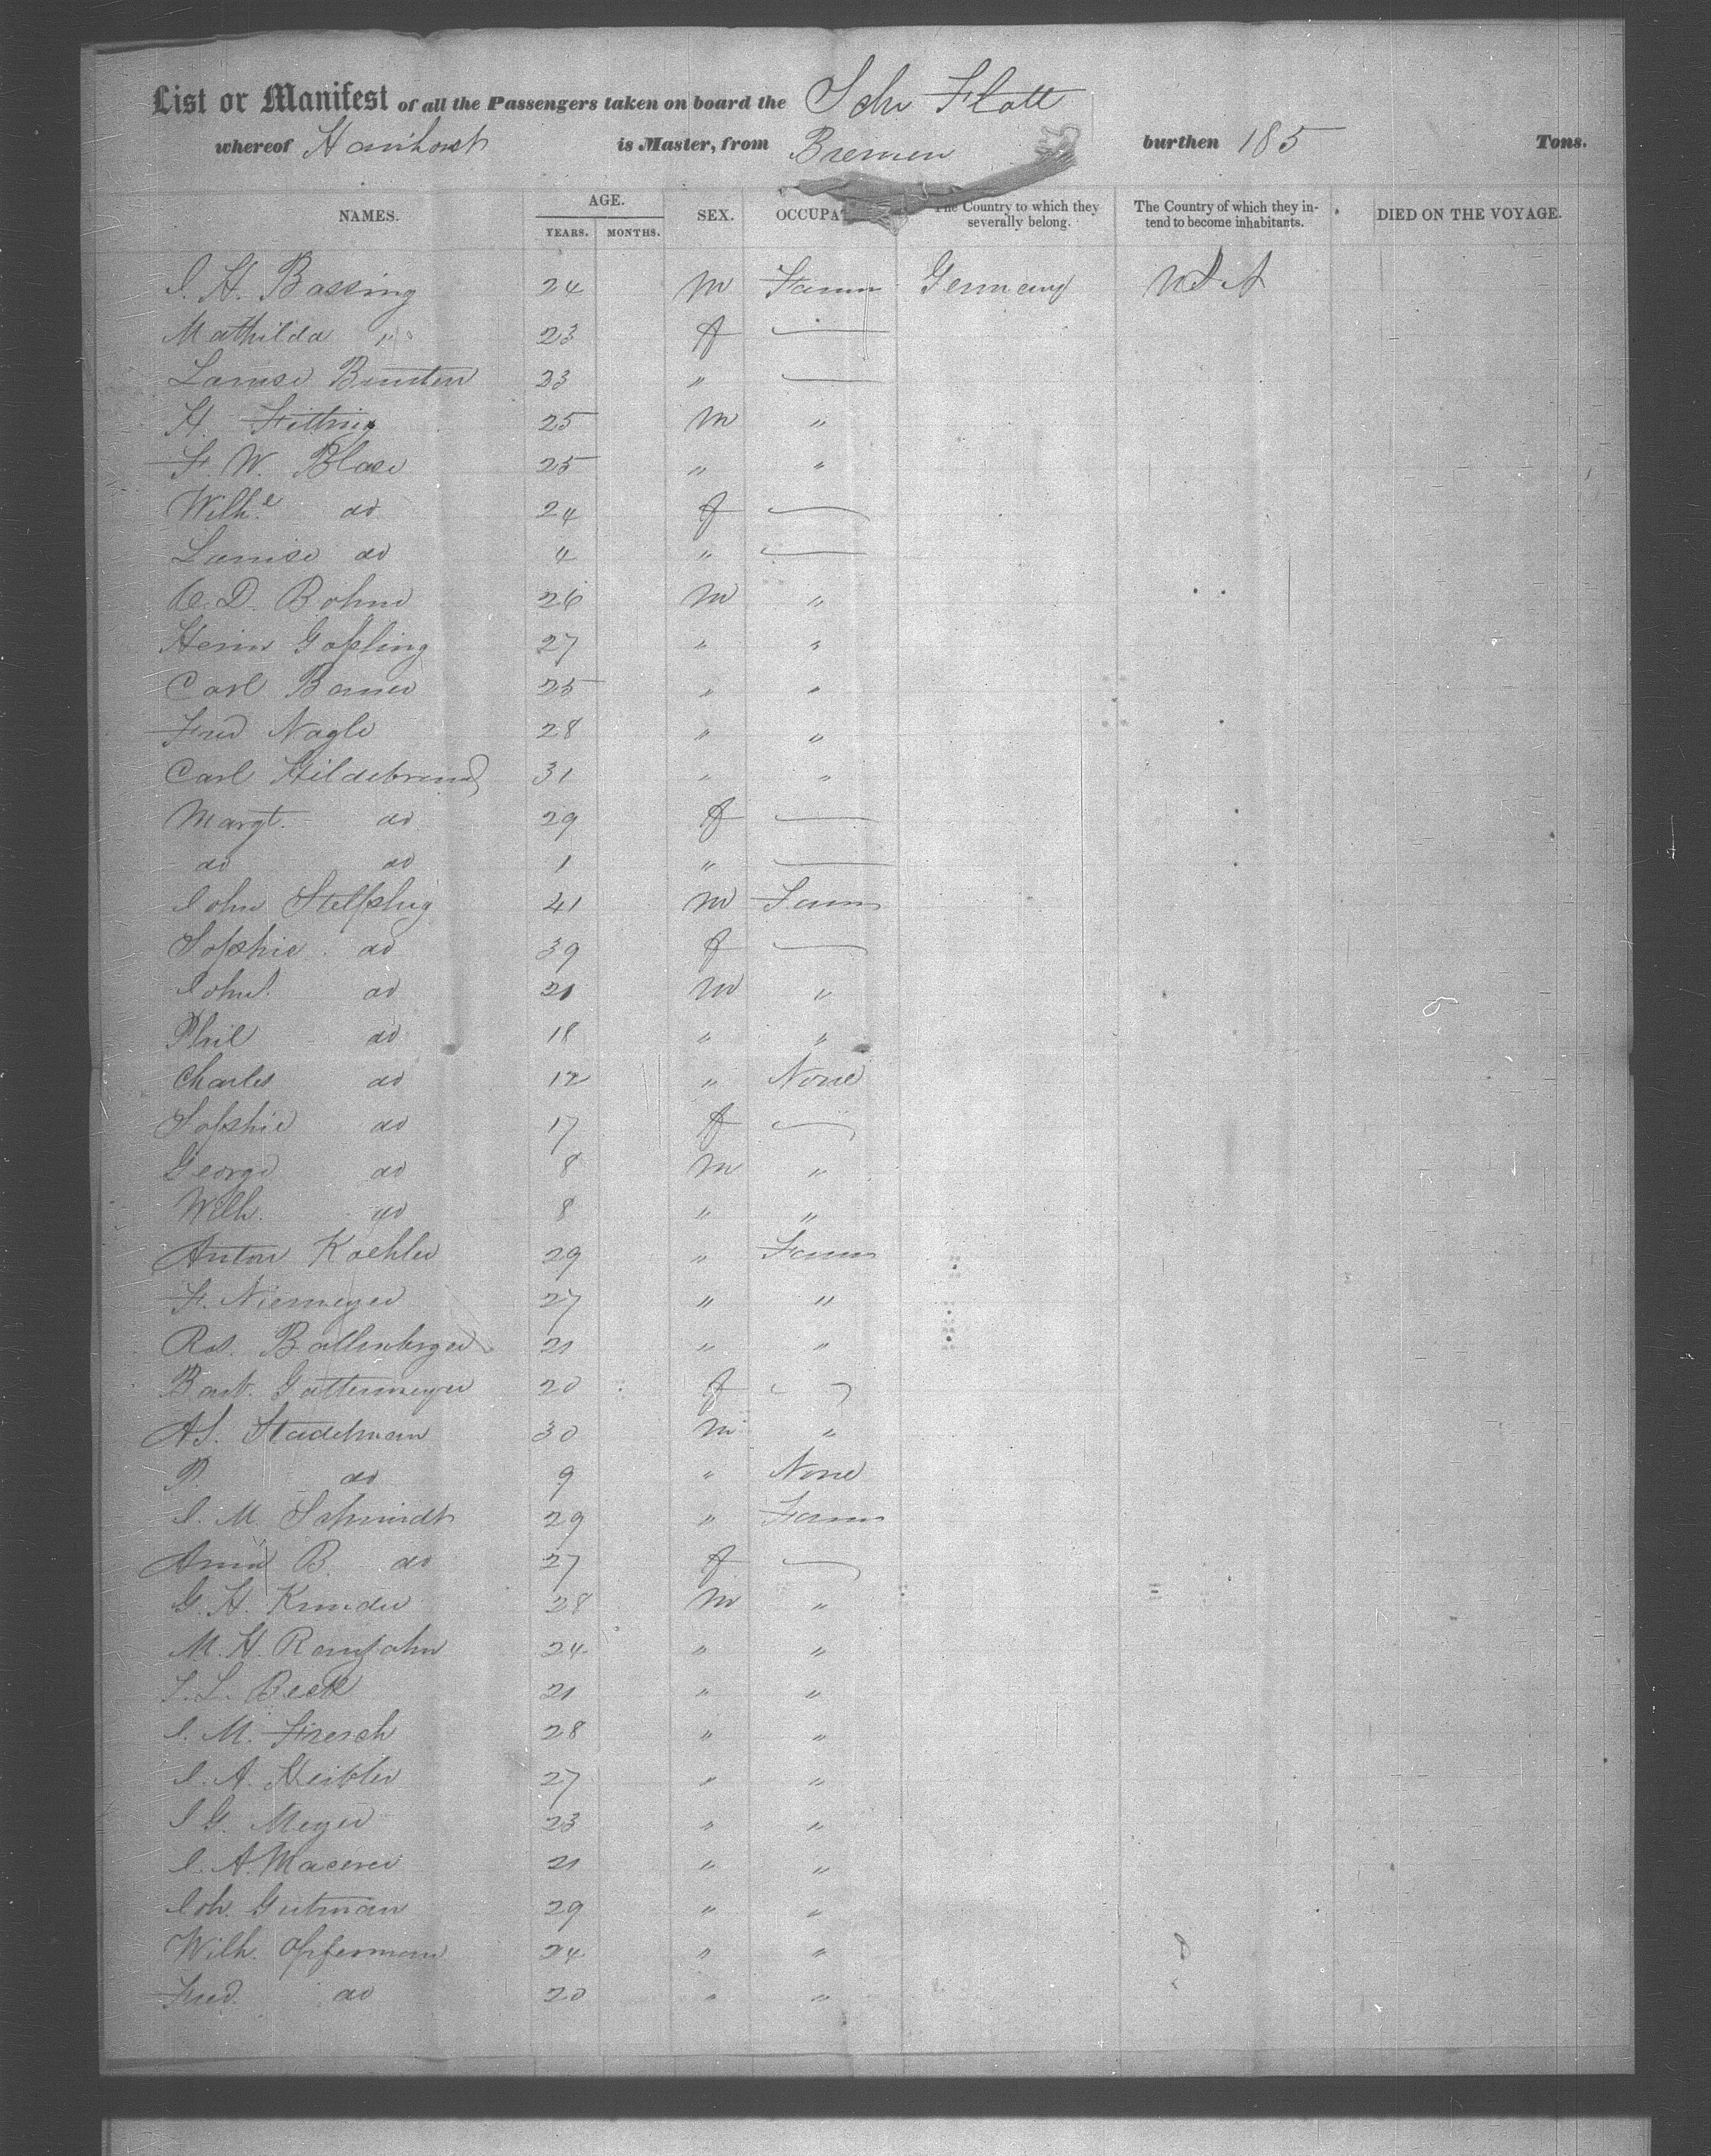 List or Manifest of all the Passengers taken on board the Schr Flott
whereof is Master, from Bremen burthen 185 Tons.
NAMES. AGE. YEARS. MONTHS. SEX. OCCUPAT The Country to which they severally belong. The Country of which they intend to become inhabitants. DIED ON THE VOYAGE.
I. H. Bassing 24 m Farmr Germany USA
Mathilda " 23 f —
Louise 23 " —
H. 25 m "
F. W. Blase 25 " "
Wilhe do 24 f —
Louise do 4 " —
C. D. Bohm 26 m "
Heinr Goßling 27 " "
Carl 25 " "
Fred Nagle 28 " "
Carl Hildebrand 31 " "
Margt. do 29 f —
do do 1 " —
John 41 m Farmr
Sophie do 39 f —
John do 21 m "
Phil do 18 " "
Charles do 12 " None
Sophie do 17 f —
George do 8 m "
Wilh. do 8 " "
Anton Koehler 29 " Farmr
F. Niemeyer 27 " "
Ballenberger 21 " "
Gattermeyer 20 f —
Stadelman 30 m "
P. do 9 " None
I. M. Schmidt 29 " Farmr
Anna B. do 27 f —
G. H. 28 m "
M. H. Ramsohn 24 " "
Beck 21 " "
I. M. Fresch 28 " "
I. A. 27 " "
I G. Meyer 23 " "
I. A. 21 " "
Joh. Gutman 29 " "
Wilh. Opferman 24 " "
Fred. do 20 " "